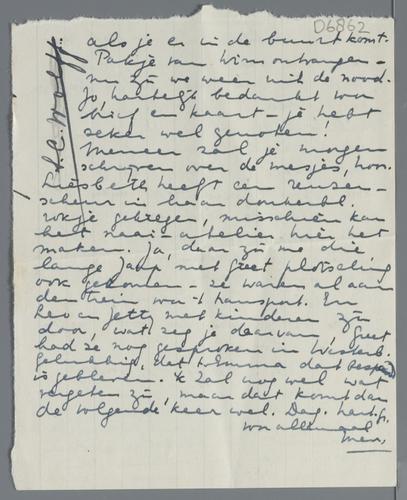 D6862
als je er in de buurt komt.
Pakje van Wim ontvangen -
nu zijn we weer uit de nood.
Jo, hartelijk bedankt voor
brief en kaart - je hebt
zeker wel genoten!
Meneer zal je morgen
schrijven over de mesjes, hoor.
Liesbeth heeft een reuzen-
scheur in haar donkerbl.
rokje gekregen, misschien kan
het naai-atelier hier het
maken. Ja, daar zijn me die
lange Jaap met Greet plotseling
ook gekomen - ze waren al aan
den trein van 't transport. En
Leo en Jetty met kinderen zijn
door, wat zeg je daarvan, Greet
had ze nog gesproken in Westerb.
gelukkig, dat Emma dat bespaard
is gebleven. Ik zal nog wel wat
vergeten zijn, maar dat komt dan
de volgende keer wel. Dag, hart. gr.
van allemaal
L.C. Wolff